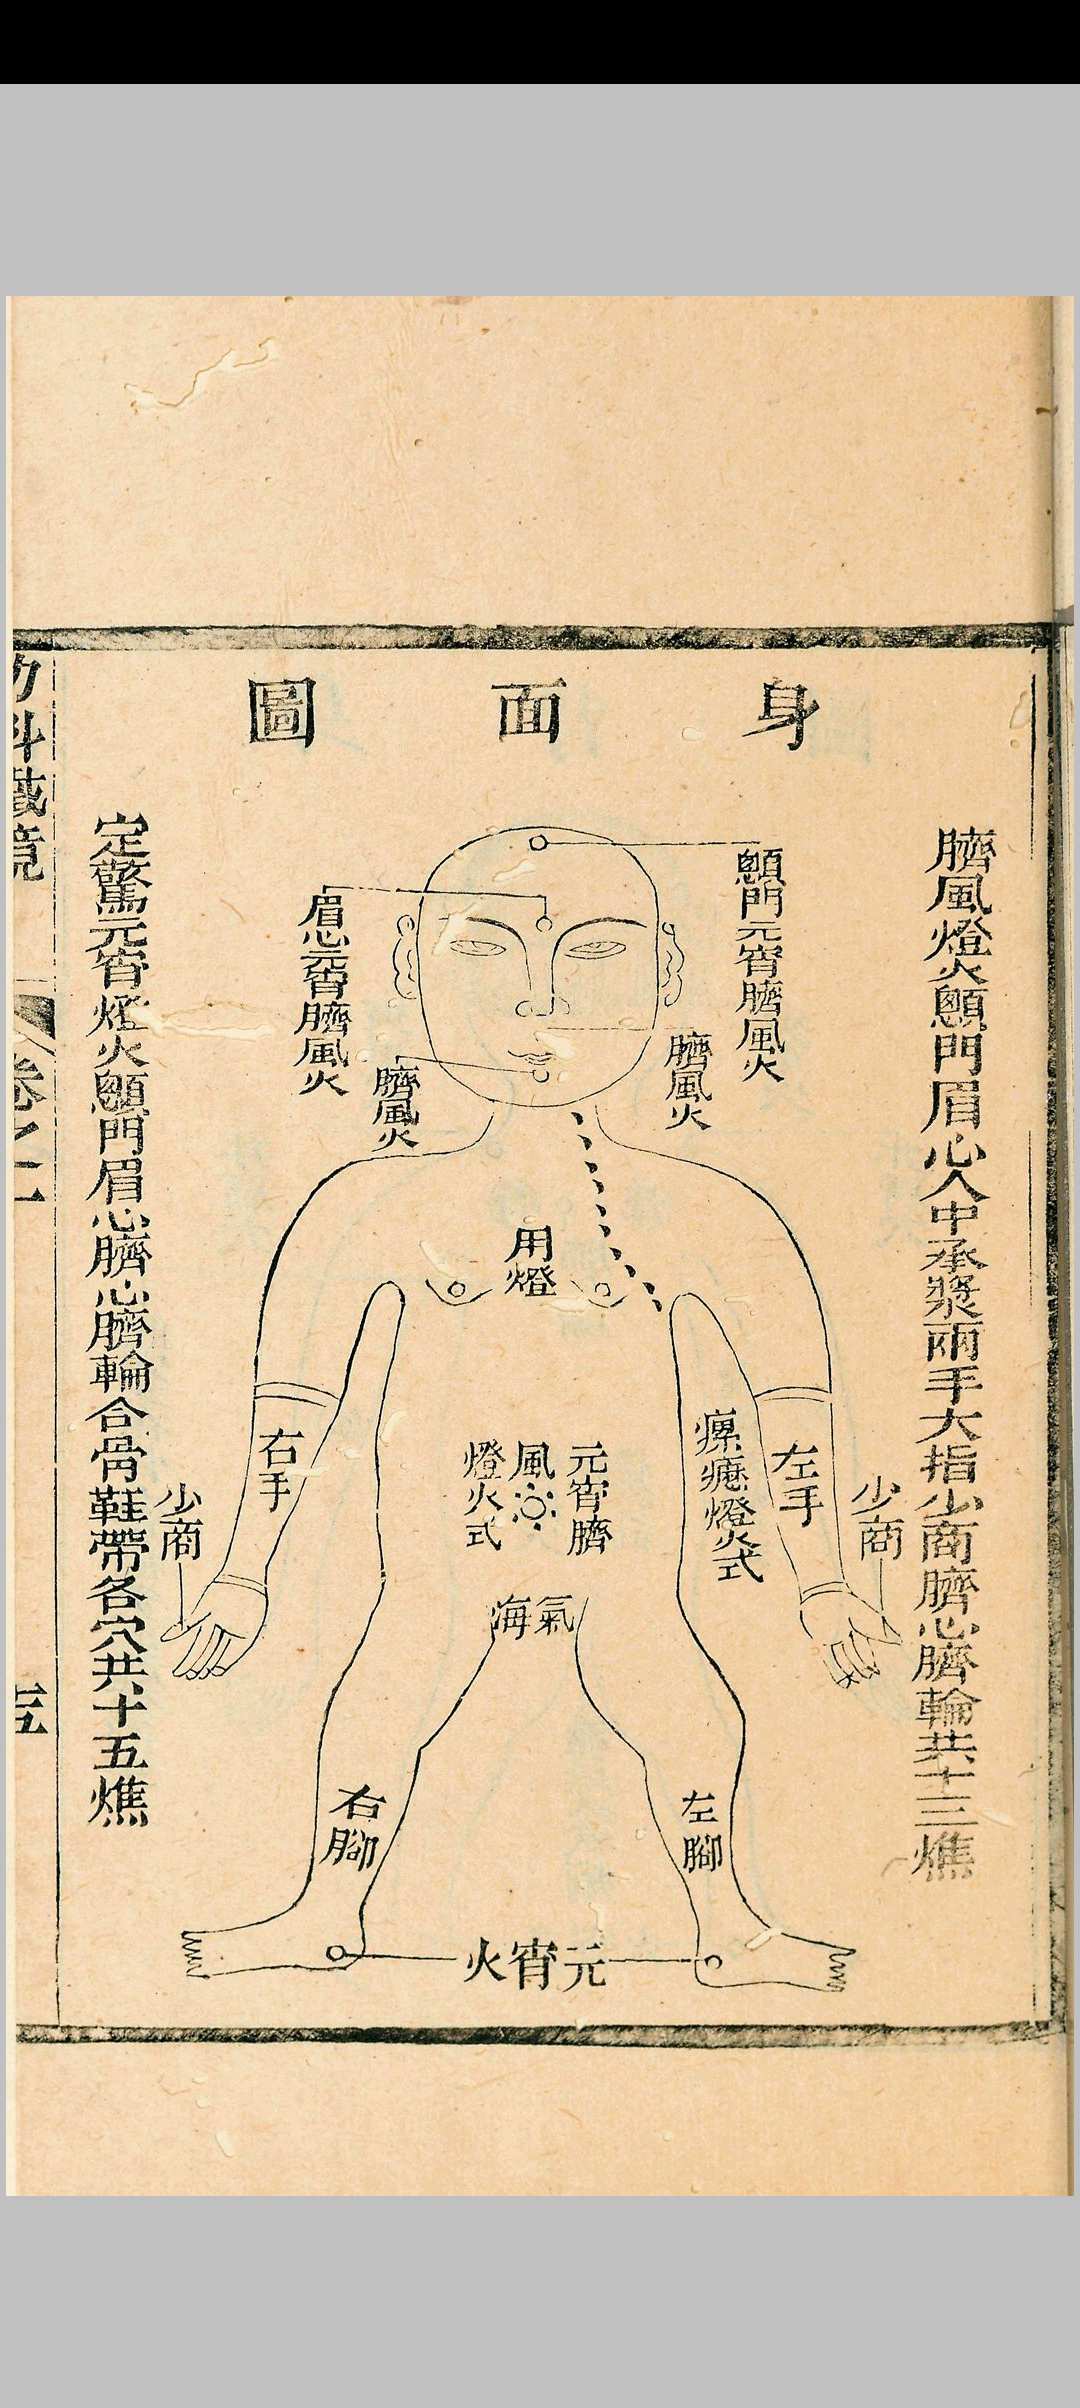 身面圖
臍風燈火顖門眉心人中承漿兩手大指少商臍心臍輪共十三燋
顖門元宵臍風火
臍風火
眉心元宵臍風火
臍風火
用燈
左手
少商
瘰癧燈火式
元宵臍
風
燈火式
氣海
右手
少商
左腳
右腳
元宵火
定驚元宵燈火顖門眉心臍心臍輪合骨鞋帶各穴共十五燋
幼科鐵鏡
卷之二
五